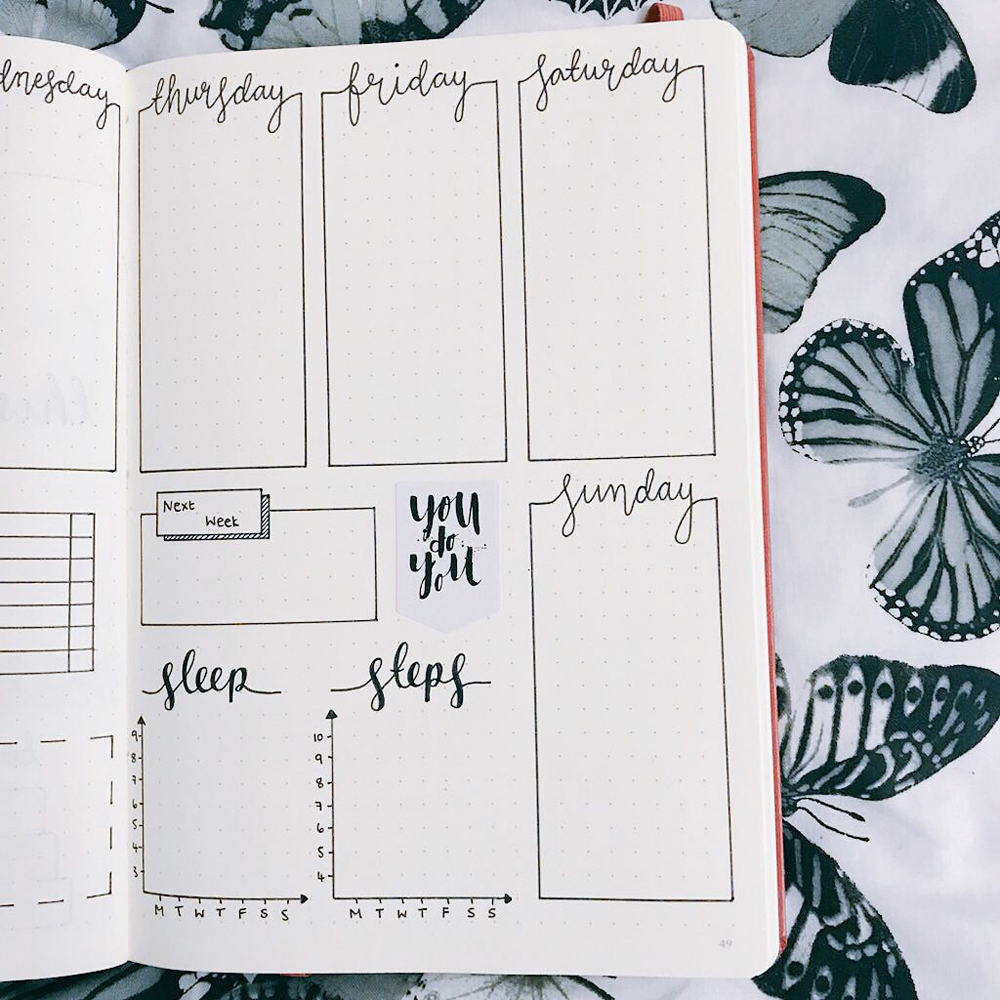 thursday
friday
saturday
Next
Week
you
do
you
sunday
sleep
steps
9
8
7
6
5
4
3
M T W T F S S
10
9
8
7
6
5
4
M T W T F S S
49